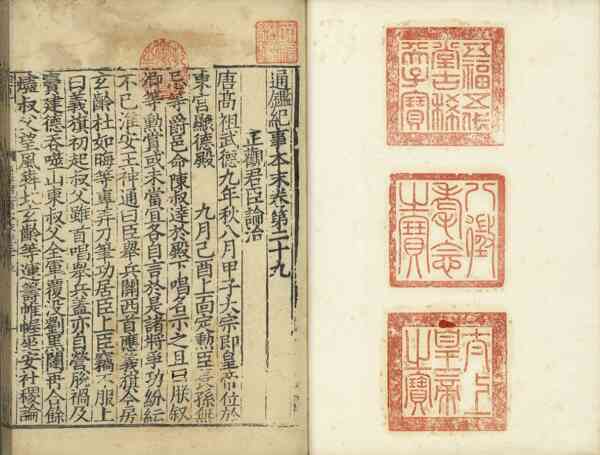 五福五代
堂古稀
天子寶
八徵
耄念
之寶
太上
皇帝
之寶
通鑑紀事本末卷第二十九
正觀君臣論治
唐高祖武德九年秋八月甲子太宗即皇帝位於
東宮顯德殿　九月己酉上面定勳臣長孫無
忌等爵邑命陳叔達於殿下唱名示之且曰朕叙
卿等勳賞或未當宜各自言於是諸將爭功紛紜
不已淮安王神通曰臣舉兵關西首應義旗今房
玄齡杜如晦等專弄刀筆功居臣上臣竊不服上
曰義旗初起叔父雖首唱舉兵蓋亦自營脫禍及
竇建德吞噬山東叔父全軍覆没劉黑闥再合餘
燼叔父望風奔北玄齡等運籌帷幄坐安社稷論